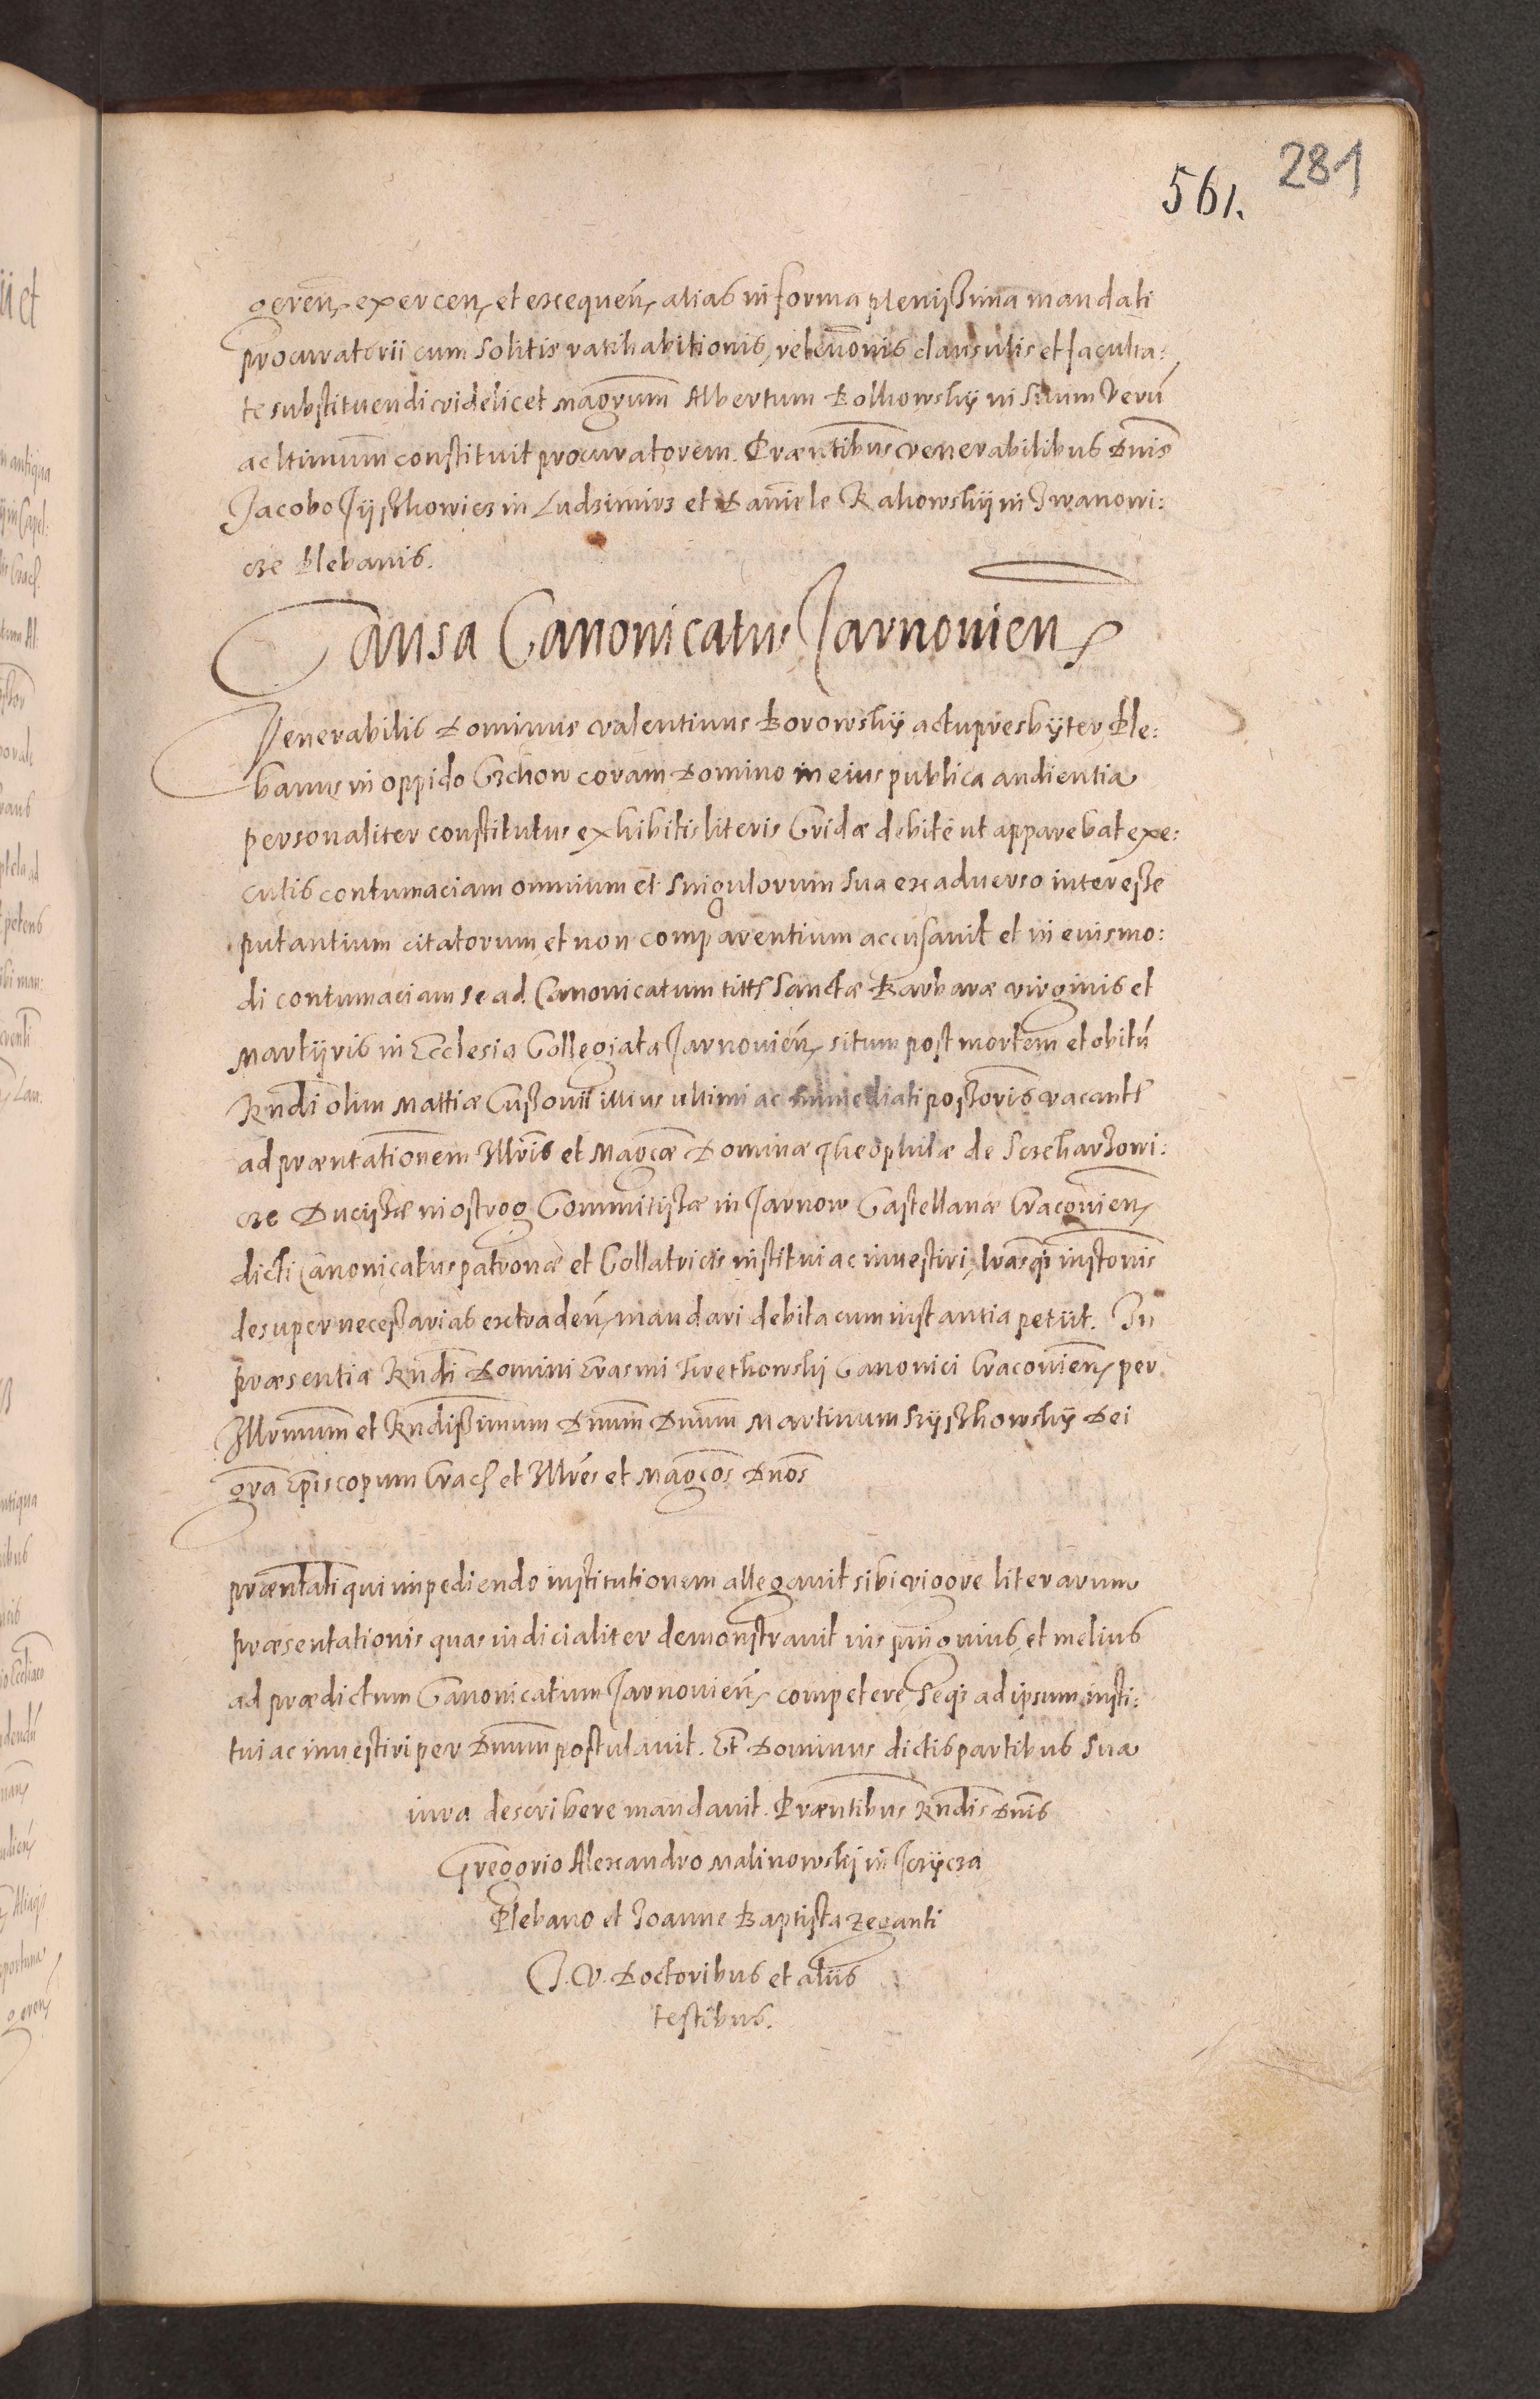 281
561.
geren̄ exercen̄ et exequen̄ alias in forma plenißima mandati
procuratorii cum solitis ratihabitionis, releuōnis clausulis et faculta:
te substituendi videlicet Magrum̄ Albertum Bolkowsky in suum Verū
ac ltimum̄ constituit procuratorem. Præntib̄us venerabilibus Dn̄is
Jacobo Tyszkowicz in Ludzimirz et Daniele Rakowsky in Iwanowi:
cze Plebanis.
Causa Canonicatus Tarnouien̄
Venerabilis Dominus Valentinus Borowsky actu presbyter Ple:
banus in oppido Czchow coram Domino in eius publica audientia
personaliter constitutus exhibitis literis Cridæ debitè ut apparebat exe:
cutis contumaciam omnium et singulorum sua ex aduerso interesse
putantium citatorum et non comparentium accusauit et in euismo:
di contumaciam se ad Canonicatum titt Sanctæ Barbaræ virginis et
Martyris in Ecclesia Collegiata Tarnouien̄ situm post mortem et obitū
Rndi olim Mattiæ Cußouii illius ultimi ac immediati poss̄oris vacant
ad præntationem̄ Illris et Magcæ Dominæ Theophilæ de Sczekarzowi:
cze Ducissæ in Ostrog Comitissæ in Tarnow Castellanæ Cracouien̄
dicti Canonicatus patronæ et Collatricis institui ac inuestiri, lrasq; instōnis
desuper necessarias extraden̄ mandari debita cum instantia petiit. In
præsentia Rndi Domini Erasmi Kretkowski Canonici Cracouien̄ per
Illrmum̄ et Rndißimum Dnum̄ Dnum̄ Martinum Szyszkowsky Dei
gra Episcopum Crac et Illres et Magcos Dnos
præntati qui impediendo institutionem allegauit sibi vigore literarum
præsentationis quas iudicialiter demonstrauit ius pinguius et melius
ad prædictum Canonicatum Tarnouien̄ competere, seq; ad ipsum insti:
tui ac inuestiri per Dnum̄ postulauit. Et Dominus dictis partibus sua
iura describere mandauit. Præntibus Rndis Dnis
Gregorio Alexandro Malinowski in Tczycza
Plebano et Joanne Baptista Zeganti
J. V. Doctoribus et aliis
testibus.